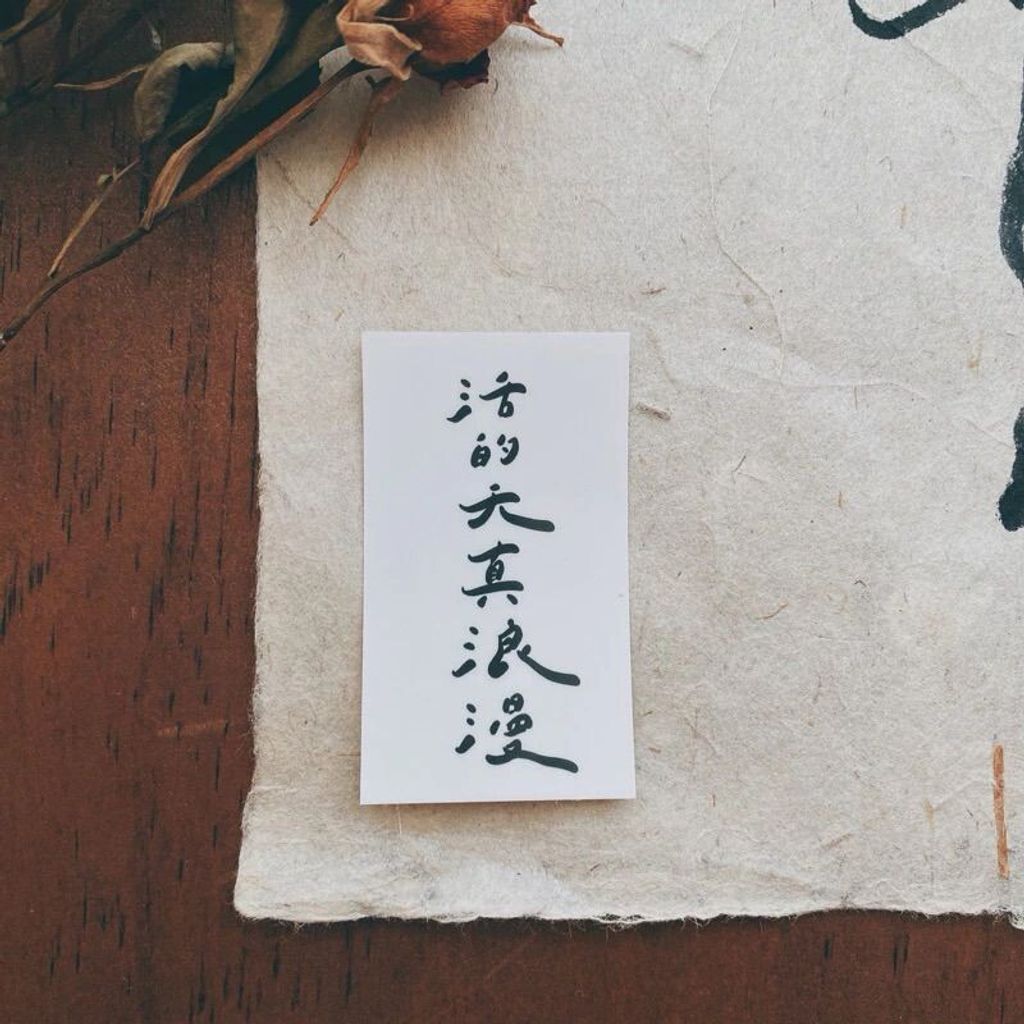 活的天真浪漫